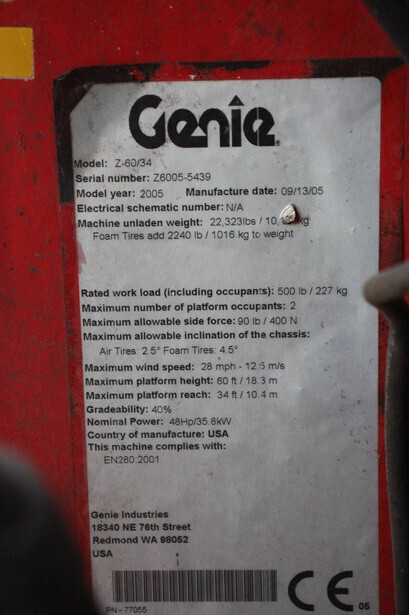 Genie
Model: Z-60/34
Serial number: Z6005-5439
Model year: 2005 Manufacture date: 09/13/05
Electrical schematic number: N/A
Machine unladen weight: 22,323lbs /
Foam Tires add 2240 lb / 1016 kg to weight
Rated work load (including occupants): 500 lb / 227 kg
Maximum number of platform occupants: 2
Maximum allowable side force: 90 lb / 400 N
Maximum allowable inclination of the chassis:
Air Tires: 2.5° Foam Tires: 4.5°
Maximum wind speed: 28 mph - 12.5 m/s
Maximum platform height: 60 ft / 18.3 m
Maximum platform reach: 34 ft / 10.4 m
Gradeability: 40%
Nominal Power: 48Hp/35.8kW
Country of manufacture: USA
This machine complies with:
EN280:2001
Genie Industries
18340 NE 76th Street
Redmond WA 98052
USA
PN - 77055
CE 05